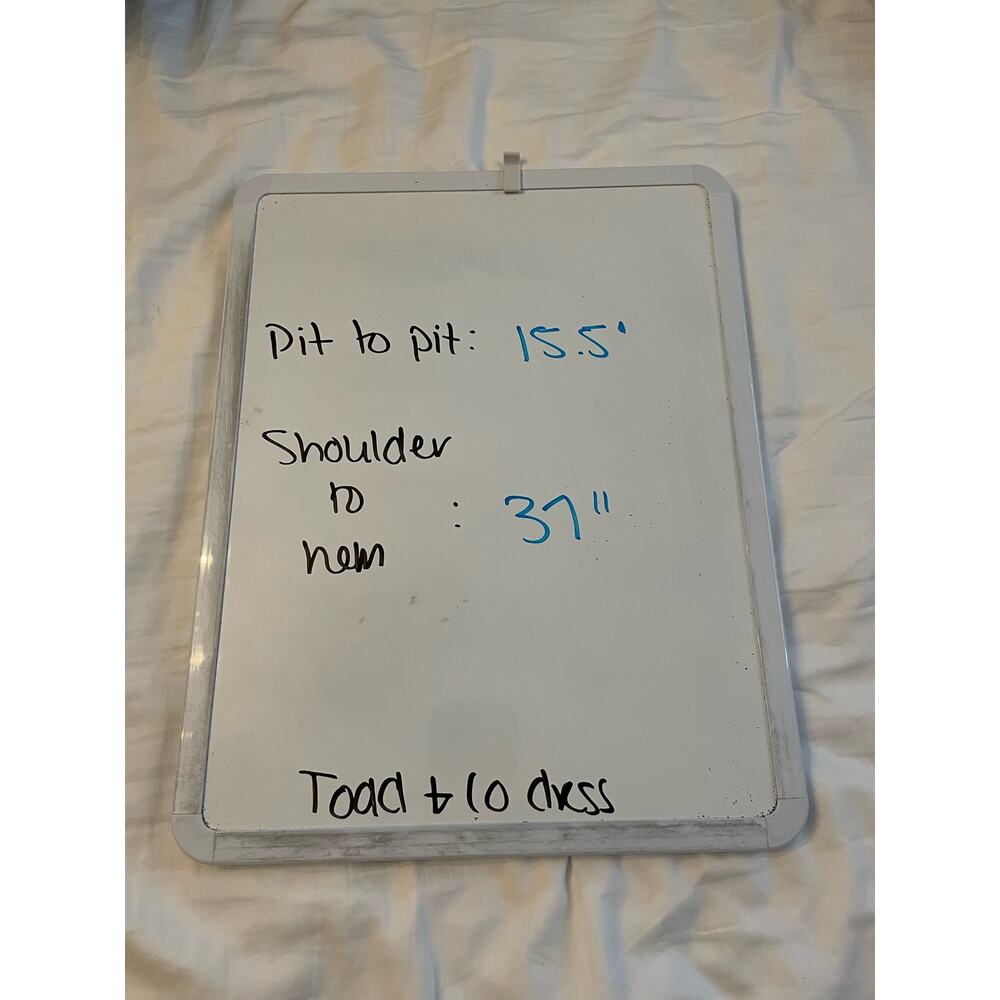 Pit to pit: 15.5'
Shoulder
to : 37"
hem
Toad + Co dress